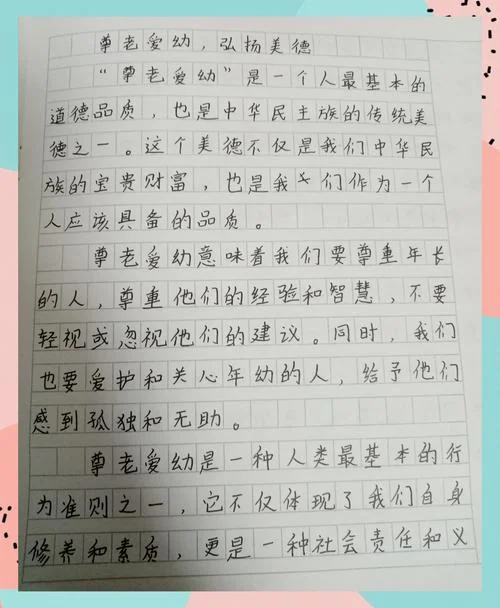 尊老爱幼，弘扬美德
“尊老爱幼”是一个人最基本的
道德品质，也是中华民主族的传统美
德之一。这个美德不仅是我们中华民
族的宝贵财富，也是我们作为一个
人应该具备的品质。
尊老爱幼意味着我们要尊重年长
的人，尊重他们的经验和智慧，不要
轻视或忽视他们的建议。同时，我们
也要爱护和关心年幼的人，给予他们
感到孤独和无助。
尊老爱幼是一种人类最基本的行
为准则之一，它不仅体现了我们自身
修养和素质，更是一种社会责任和义